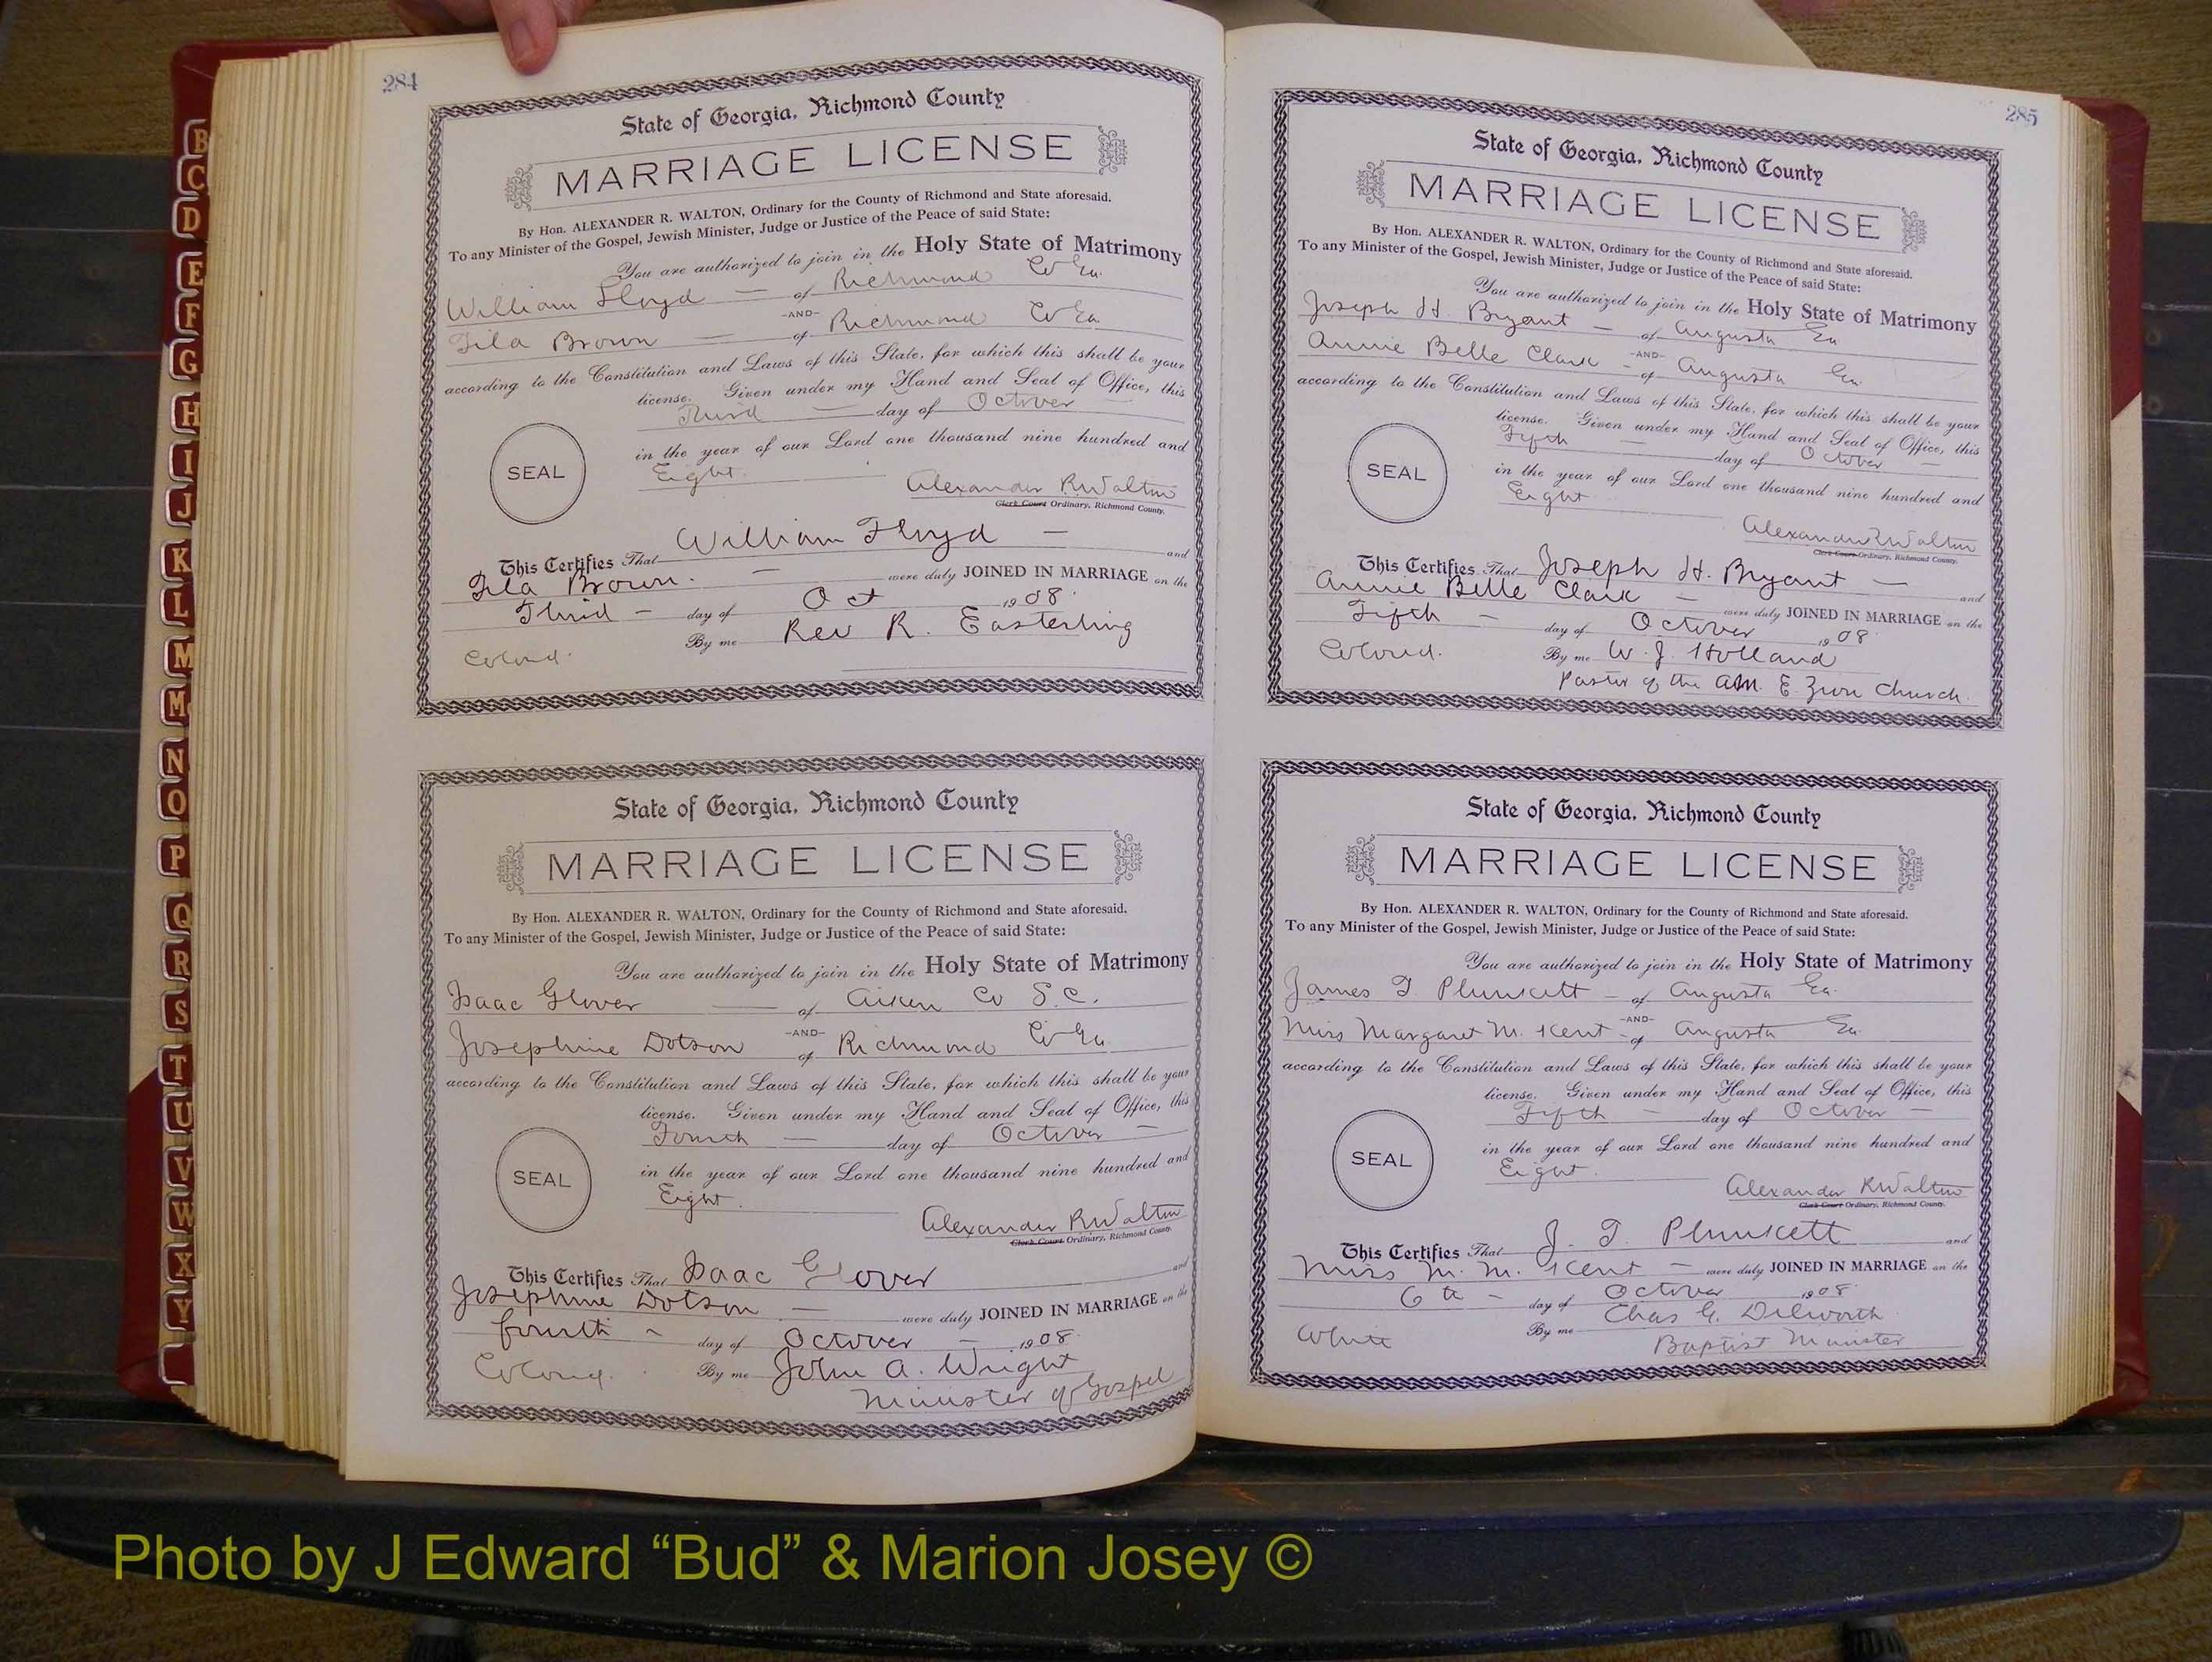 284
State of Georgia, Richmond County
MARRIAGE LICENSE
By Hon. ALEXANDER R. WALTON, Ordinary for the County of Richmond and State aforesaid.
To any Minister of the Gospel, Jewish Minister, Judge or Justice of the Peace of said State:
You are authorized to join in the Holy State of Matrimony
William Floyd — of Richmond Co Ga.
-AND-
Brown — of Richmond Co Ga
according to the Constitution and Laws of this State, for which this shall be your
license. Given under my Hand and Seal of Office, this
Third — day of October
in the year of our Lord one thousand nine hundred and
Eight.
SEAL
Alexander R Walton
Clerk Court Ordinary, Richmond County.
This Certifies That William Floyd — and
Brown. — were duly JOINED IN MARRIAGE on the
Third — day of Oct 1908.
By me Rev R. Easterling
Colored.
State of Georgia, Richmond County
MARRIAGE LICENSE
By Hon. ALEXANDER R. WALTON, Ordinary for the County of Richmond and State aforesaid.
To any Minister of the Gospel, Jewish Minister, Judge or Justice of the Peace of said State:
You are authorized to join in the Holy State of Matrimony
Isaac Glover — of Aiken Co S.C.
-AND-
Josephine Dotson of Richmond Co Ga.
according to the Constitution and Laws of this State, for which this shall be your
license. Given under my Hand and Seal of Office, this
Fourth — day of October —
in the year of our Lord one thousand nine hundred and
Eight.
SEAL
Alexander R Walton
Clerk Court Ordinary, Richmond County.
This Certifies That Isaac Glover and
Josephine Dotson — were duly JOINED IN MARRIAGE on the
fourth - day of October — 1908.
Colored. By me John A. Wright
Minister of Gospel
285
State of Georgia, Richmond County
MARRIAGE LICENSE
By Hon. ALEXANDER R. WALTON, Ordinary for the County of Richmond and State aforesaid.
To any Minister of the Gospel, Jewish Minister, Judge or Justice of the Peace of said State:
You are authorized to join in the Holy State of Matrimony
Joseph H. Bryant — of Augusta Ga
-AND-
Annie Belle Clark - of Augusta Ga.
according to the Constitution and Laws of this State, for which this shall be your
license. Given under my Hand and Seal of Office, this
Fifth — day of October —
in the year of our Lord one thousand nine hundred and
Eight
SEAL
Alexander R Walton
Clerk Court Ordinary, Richmond County.
This Certifies That Joseph H. Bryant — and
Annie Belle Clark — were duly JOINED IN MARRIAGE on the
Fifth — day of October 1908.
Colored. By me W. J. Holland
Pastor of the A.M. E. Zion Church.
State of Georgia, Richmond County
MARRIAGE LICENSE
By Hon. ALEXANDER R. WALTON, Ordinary for the County of Richmond and State aforesaid.
To any Minister of the Gospel, Jewish Minister, Judge or Justice of the Peace of said State:
You are authorized to join in the Holy State of Matrimony
James T. Plunkett — of Augusta Ga.
-AND-
Miss Margaret M. Kent - of Augusta Ga.
according to the Constitution and Laws of this State, for which this shall be your
license. Given under my Hand and Seal of Office, this
Fifth — day of October —
in the year of our Lord one thousand nine hundred and
Eight.
SEAL
Alexander R Walton
Clerk Court Ordinary, Richmond County.
This Certifies That J. T. Plunkett and
Miss M. M. Kent — were duly JOINED IN MARRIAGE on the
6th - day of October 1908.
White By me Chas G. Dilworth
Baptist Minister
B
C
D
E
F
G
H
I
J
K
L
M
M
N
O
P
Q
R
S
T
U
V
W
X
Y
Photo by J Edward “Bud” & Marion Josey ©